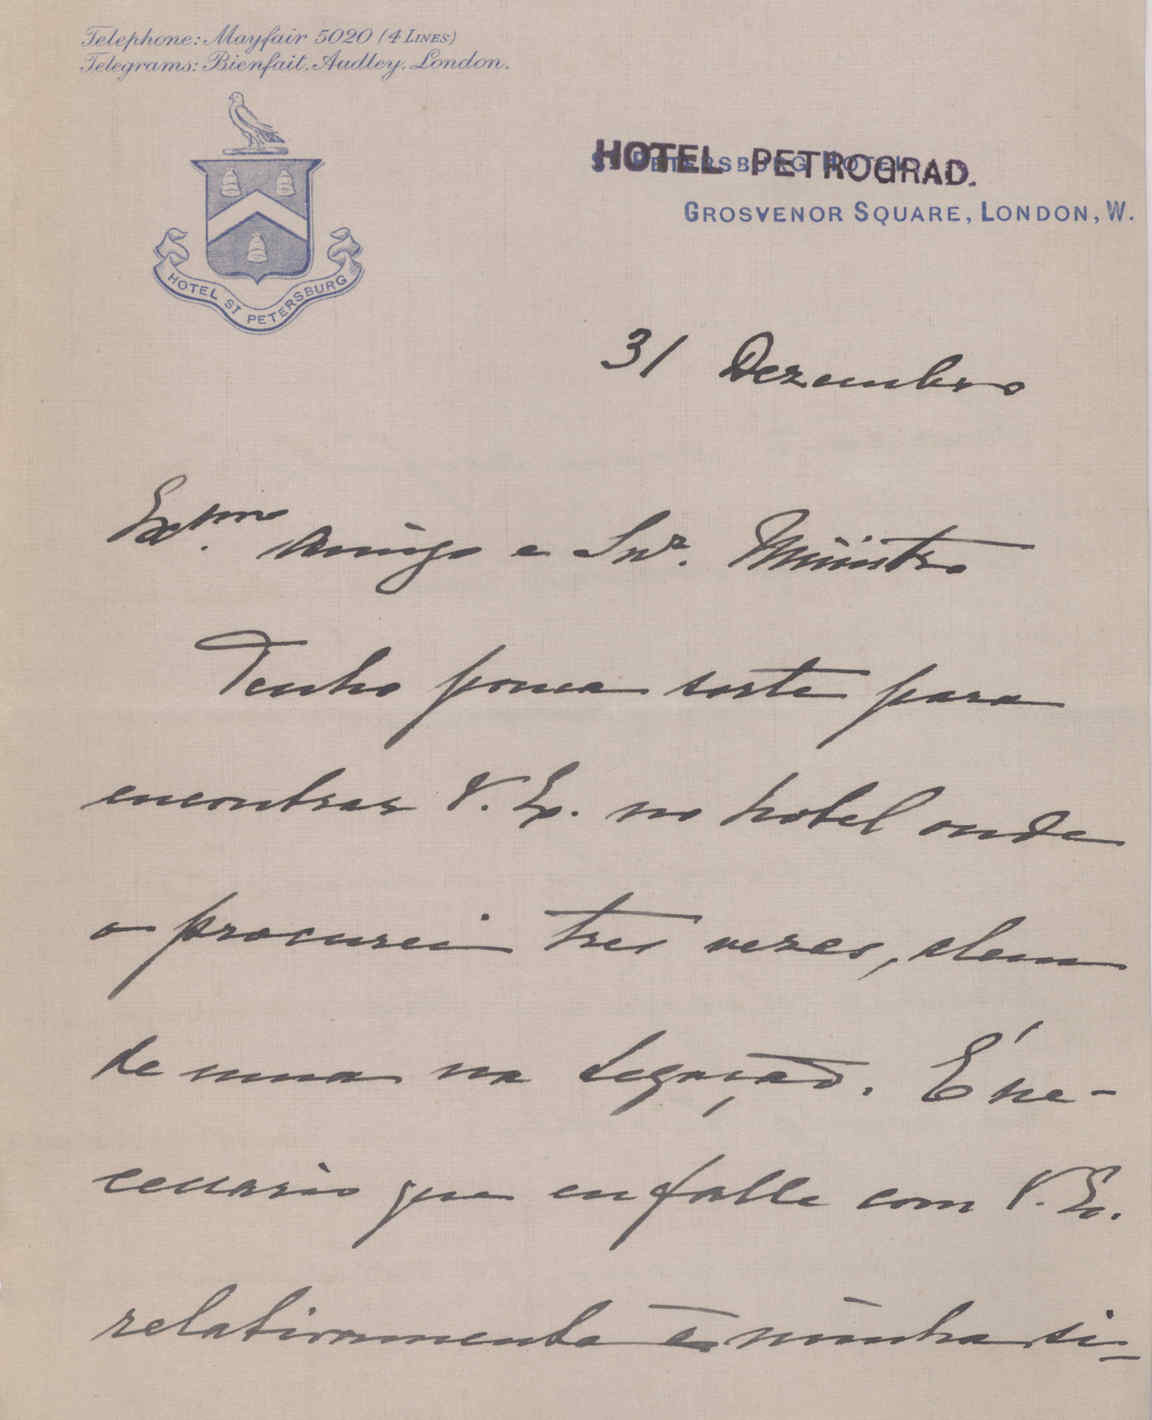 Telephone: Mayfair 5020 (4 Lines)
Telegrams: Bienfait. Audley. London.
HOTEL PETROGRAD.
HOTEL ST PETERSBURG
Grosvenor Square, London, W.
31 Dezembro
Exmo. Amigo e Snr. Ministro
Tenho pouca sorte para
encontrar V. Ex. no hotel onde
o procurei tres vezes, alem
de uma na Legação. É ne-
cessario que eu falle com V. Ex.
relativamente á minha si-